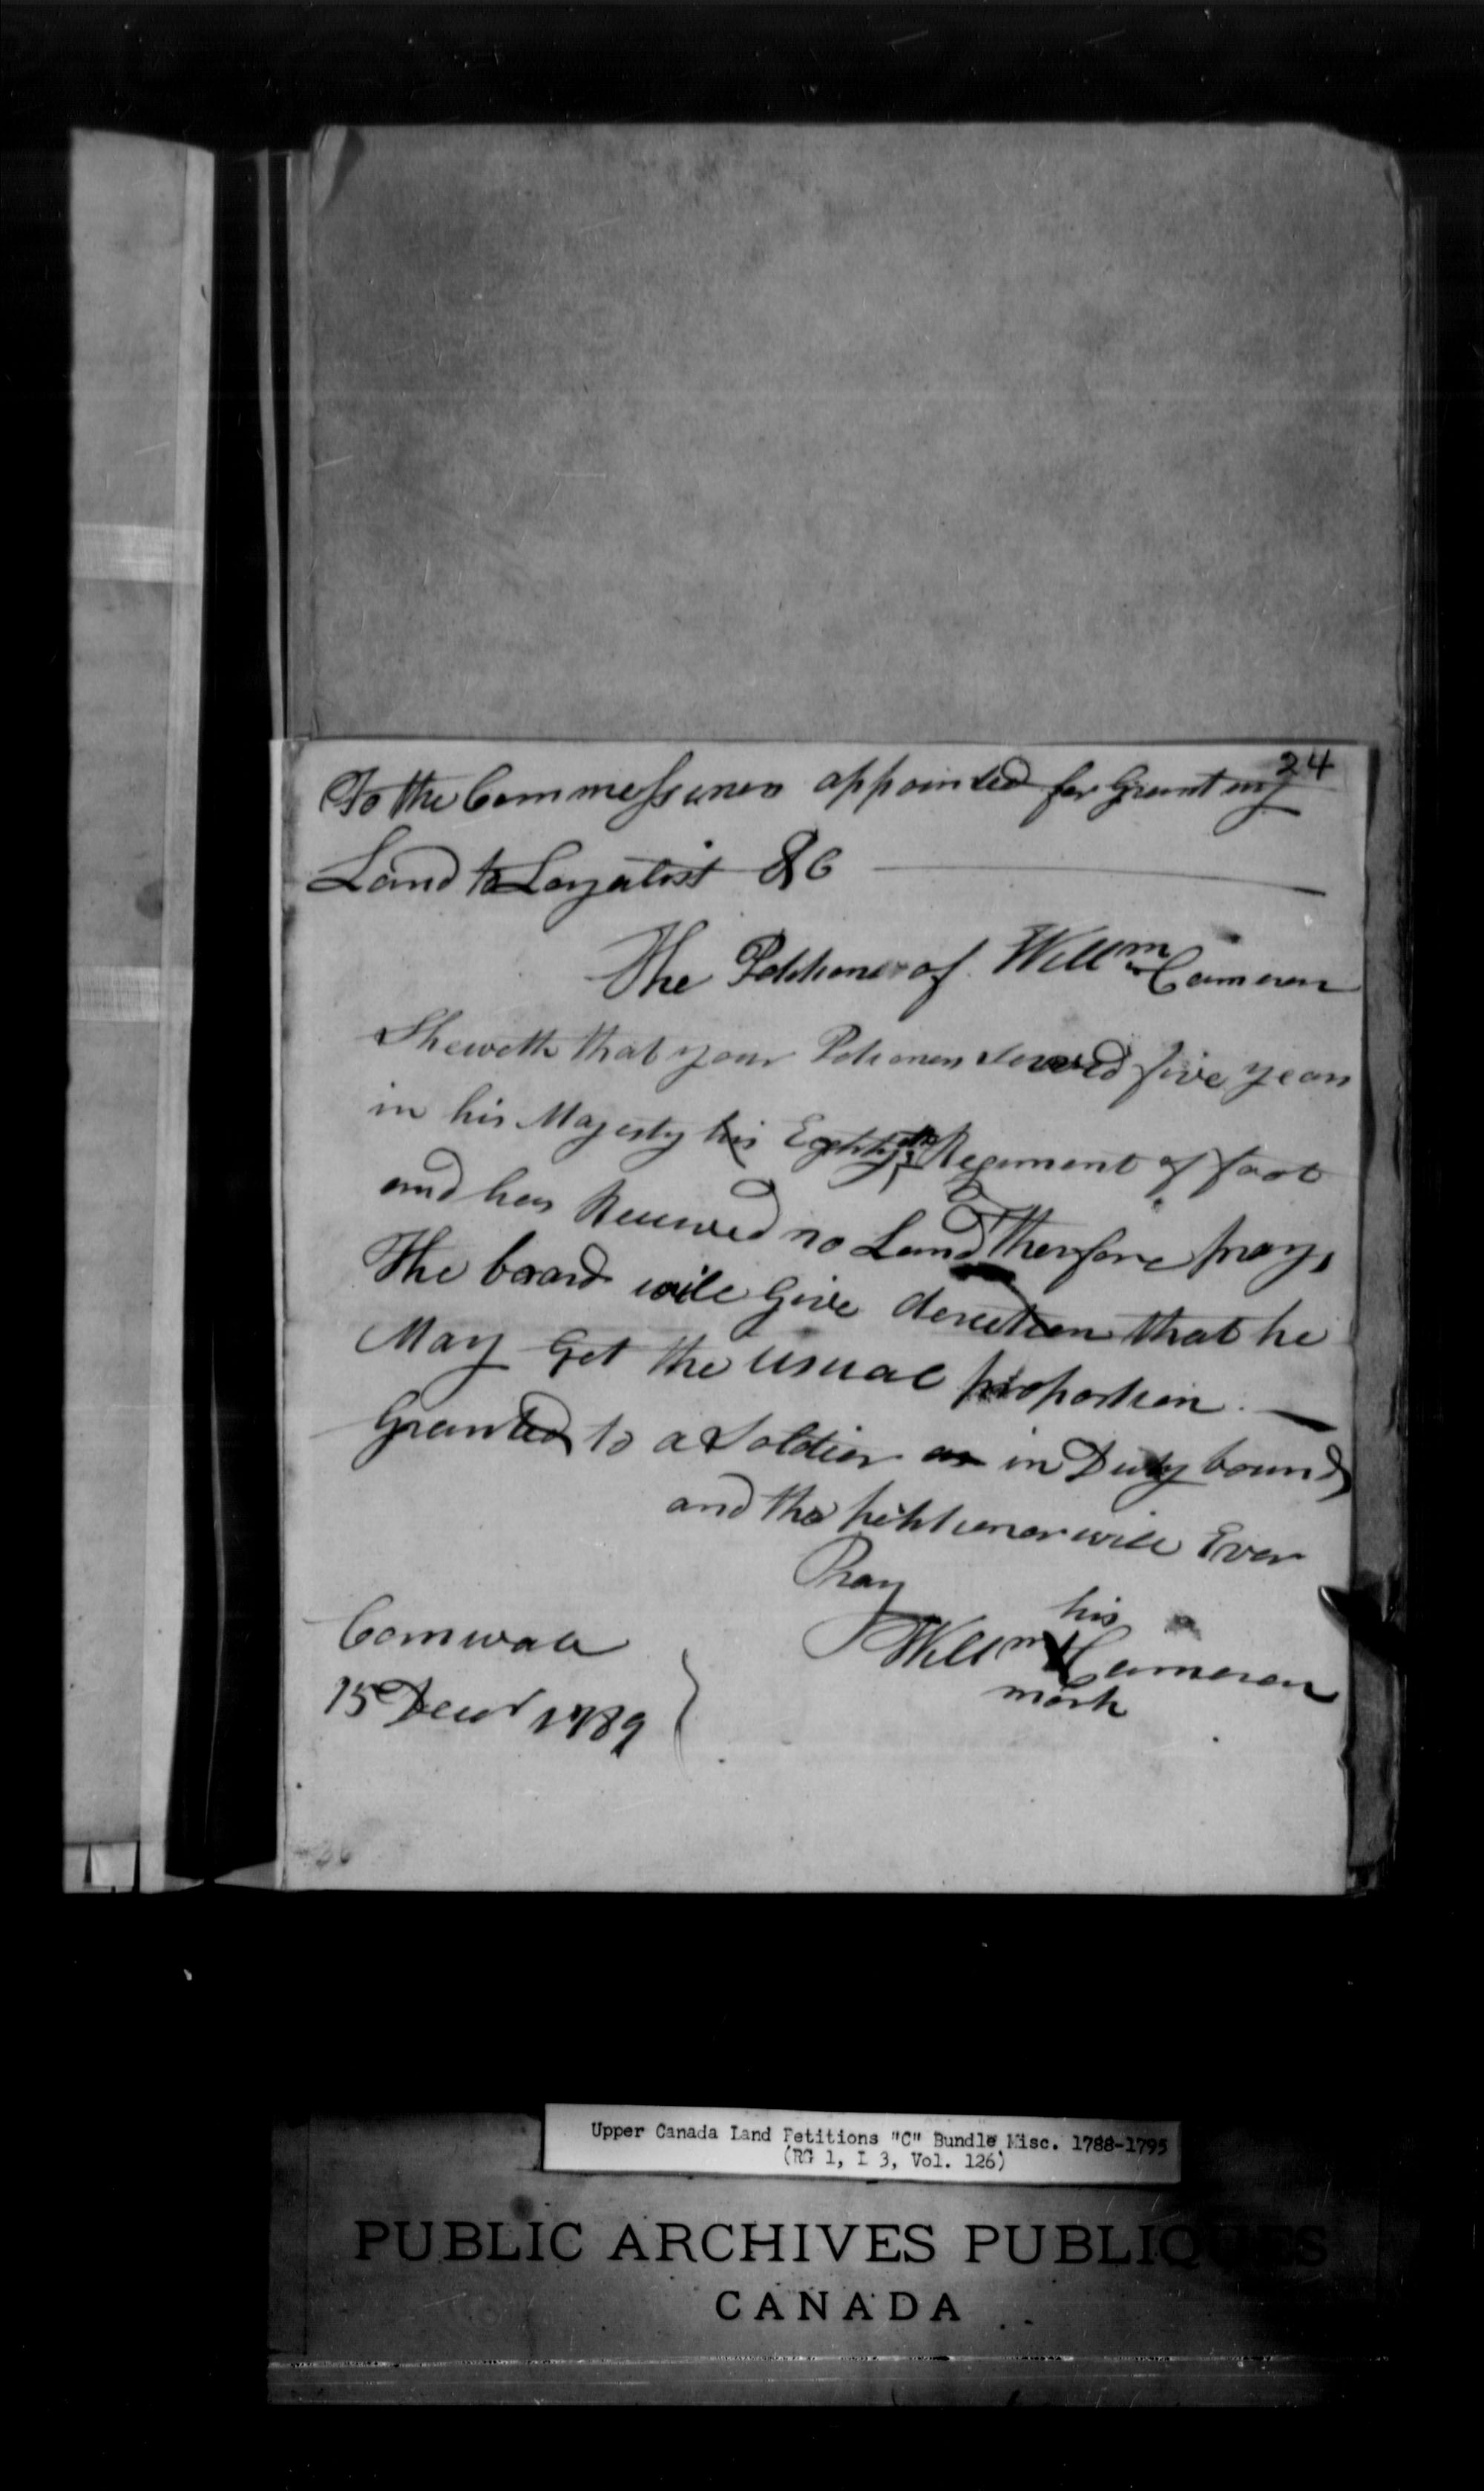 24
To the Commessiners appointed for Granting
Land to Loyalist &c
The Petitioner of Willm Cameron
Sheweth that your Petioner served five years
in his Majesty his Eghty th Regiment of foot
and has Received no Land Therefore prays
The board will Give derection that he
May Get the usual proportion
Granted to a Soldier as in Duty bound
and the petitioner will Ever
Pray
his
Willm X Cameron
mark
Cornwall
15 Decr 1789
Upper Canada Land Petitions "C" Bundle Misc. 1788-1795
(RG 1, L 3, Vol. 126)
PUBLIC ARCHIVES PUBLIQUES
CANADA